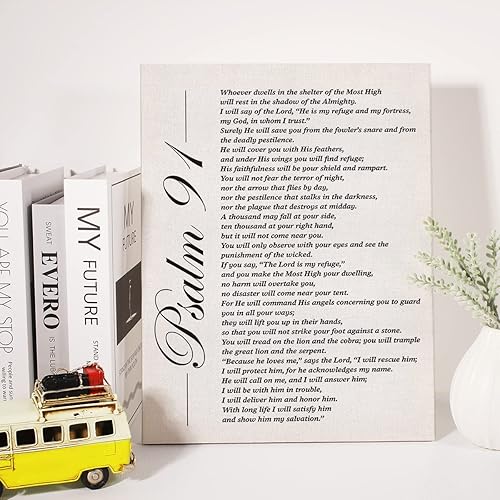 Psalm 91
Whoever dwells in the shelter of the Most High
will rest in the shadow of the Almighty.
I will say of the Lord, "He is my refuge and my fortress,
my God, in whom I trust."
Surely He will save you from the fowler's snare and from
the deadly pestilence.
He will cover you with His feathers,
and under His wings you will find refuge;
His faithfulness will be your shield and rampart.
You will not fear the terror of night,
nor the arrow that flies by day,
nor the pestilence that stalks in the darkness,
nor the plague that destroys at midday.
A thousand may fall at your side,
ten thousand at your right hand,
but it will not come near you.
You will only observe with your eyes and see the
punishment of the wicked.
If you say, "The Lord is my refuge,"
and you make the Most High your dwelling,
no harm will overtake you,
no disaster will come near your tent.
For He will command His angels concerning you to guard
you in all your ways;
they will lift you up in their hands,
so that you will not strike your foot against a stone.
You will tread on the lion and the cobra; you will trample
the great lion and the serpent.
"Because he loves me," says the Lord, "I will rescue him;
I will protect him, for he acknowledges my name.
He will call on me, and I will answer him;
I will be with him in trouble,
I will deliver him and honor him.
With long life I will satisfy him
and show him my salvation."
YOU ARE MY STOP
People and
willing to
SWEAT
EVERO
MY FUTURE
STAND